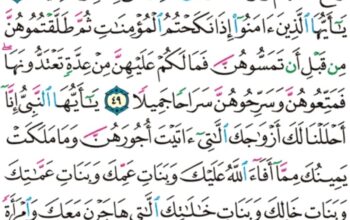 يَٰٓأَيُّهَا ٱلَّذِينَ ءَامَنُوٓا۟ إِذَا نَكَحْتُمُ ٱلْمُؤْمِنَٰتِ ثُمَّ طَلَّقْتُمُوهُنَّ
مِن قَبْلِ أَن تَمَسُّوهُنَّ فَمَا لَكُمْ عَلَيْهِنَّ مِنْ عِدَّةٍ تَعْتَدُّونَهَا ۖ
فَمَتِّعُوهُنَّ وَسَرِّحُوهُنَّ سَرَاحًا جَمِيلًا ٤٩ يَٰٓأَيُّهَا ٱلنَّبِىُّ إِنَّآ
أَحْلَلْنَا لَكَ أَزْوَٰجَكَ ٱلَّٰتِىٓ ءَاتَيْتَ أُجُورَهُنَّ وَمَا مَلَكَتْ
يَمِينُكَ مِمَّآ أَفَآءَ ٱللَّهُ عَلَيْكَ وَبَنَاتِ عَمِّكَ وَبَنَاتِ عَمَّٰتِكَ
وَبَنَاتِ خَالِكَ وَبَنَاتِ خَٰلَٰتِكَ ٱلَّٰتِى هَاجَرْنَ مَعَكَ وَٱمْرَأَةً